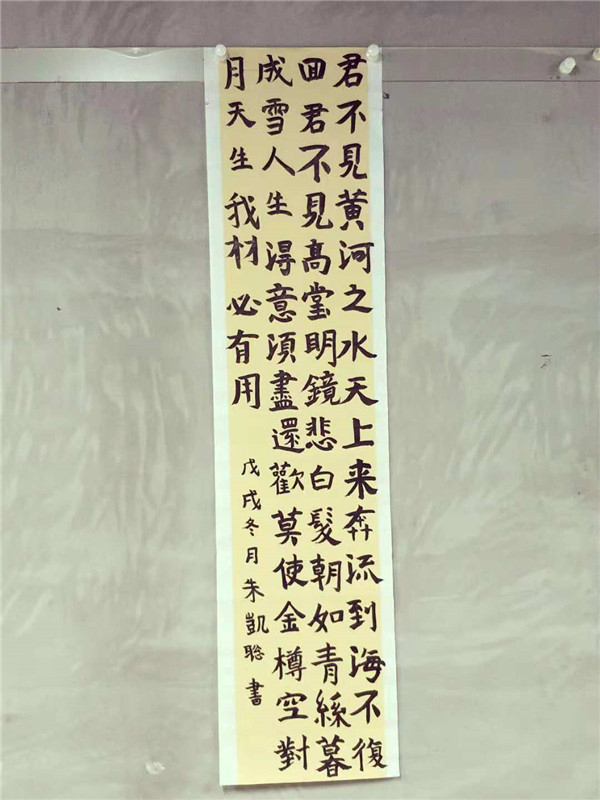 君不見黄河之水天上来奔流到海不復
回君不見髙堂明鏡悲白髮朝如青絲暮
成雪人生得意須盡還歡莫使金樽空對
月天生我材必有用
戊戌冬月朱凱聪書